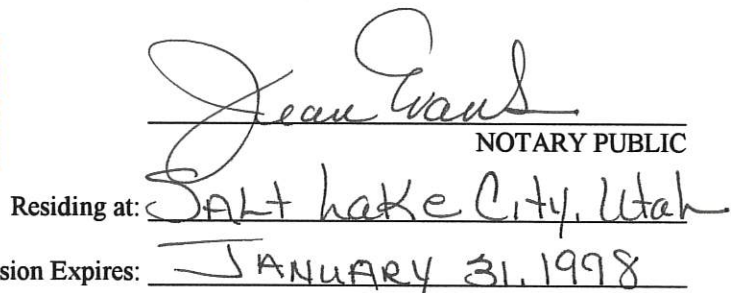 Jean Evans
NOTARY PUBLIC
Residing at: SALt Lake City, Utah
sion Expires: JANUARY 31, 1998